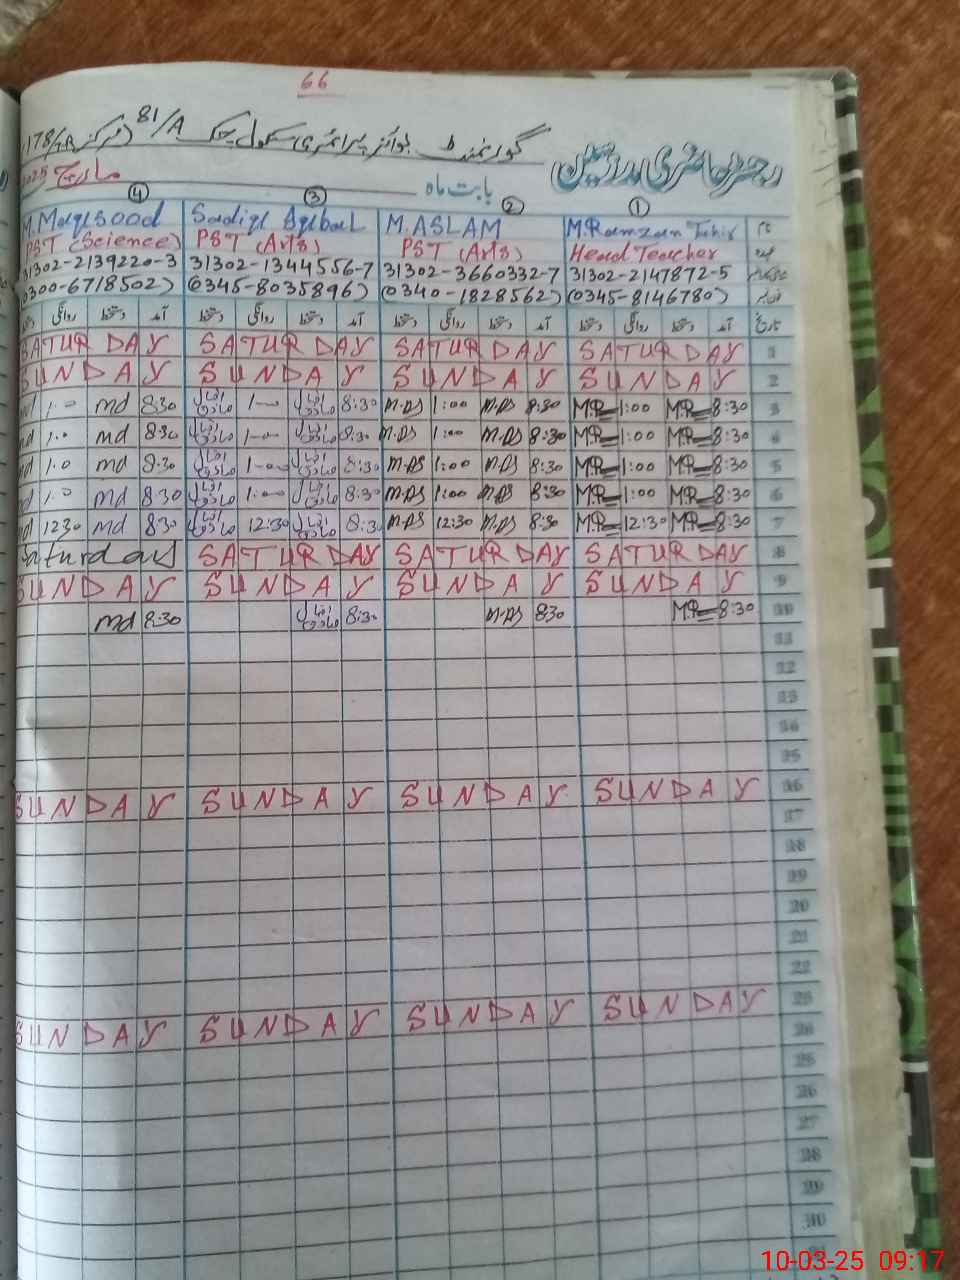 66
گورنمنٹ بوائز پرائمری سکول چک 81/A (مرکز 178/
رجسٹر حاضری مدرسین
بابت ماہ مارچ 2025
④ ③ ② ①
M. Maqsood Sadiq Iqbal M. ASLAM M. Ramzan Tahir نام
PST (Science) PST (Arts) PST (Arts) Head Teacher عہدہ
31302-2139220-3 31302-1344556-7 31302-3660332-7 31302-2147872-5
0300-6718502) (0345-8035896) (0340-1828562) (0345-8146780)
دستخط روانگی دستخط آمد دستخط روانگی دستخط آمد دستخط روانگی دستخط آمد دستخط روانگی دستخط آمد تاریخ
SATURDAY SATURDAY SATURDAY SATURDAY 1
SUNDAY SUNDAY SUNDAY SUNDAY 2
md 1.0 md 8:30 1-00 8:30 M.AS 1:00 M.AS 8:30 M.R 1:00 M.R 8:30 3
md 1.0 md 8:30 1-00 8:30 M.AS 1:00 M.AS 8:30 M.R 1:00 M.R 8:30 4
md 1.0 md 8:30 1-00 8:30 M.AS 1:00 M.AS 8:30 M.R 1:00 M.R 8:30 5
md 1.0 md 8:30 1:00 8:30 M.AS 1:00 M.AS 8:30 M.R 1:00 M.R 8:30 6
md 1230 md 8:30 12:30 8:30 M.AS 12:30 M.AS 8:30 M.R 12:30 M.R 8:30 7
Saturday SATURDAY SATURDAY SATURDAY 8
SUNDAY SUNDAY SUNDAY SUNDAY 9
md 8:30 8:30 M.AS 8:30 M.R 8:30 10
11
12
13
14
15
SUNDAY SUNDAY SUNDAY SUNDAY 16
17
18
19
20
21
22
SUNDAY SUNDAY SUNDAY SUNDAY 23
24
25
26
27
28
29
30
10-03-25 09:17